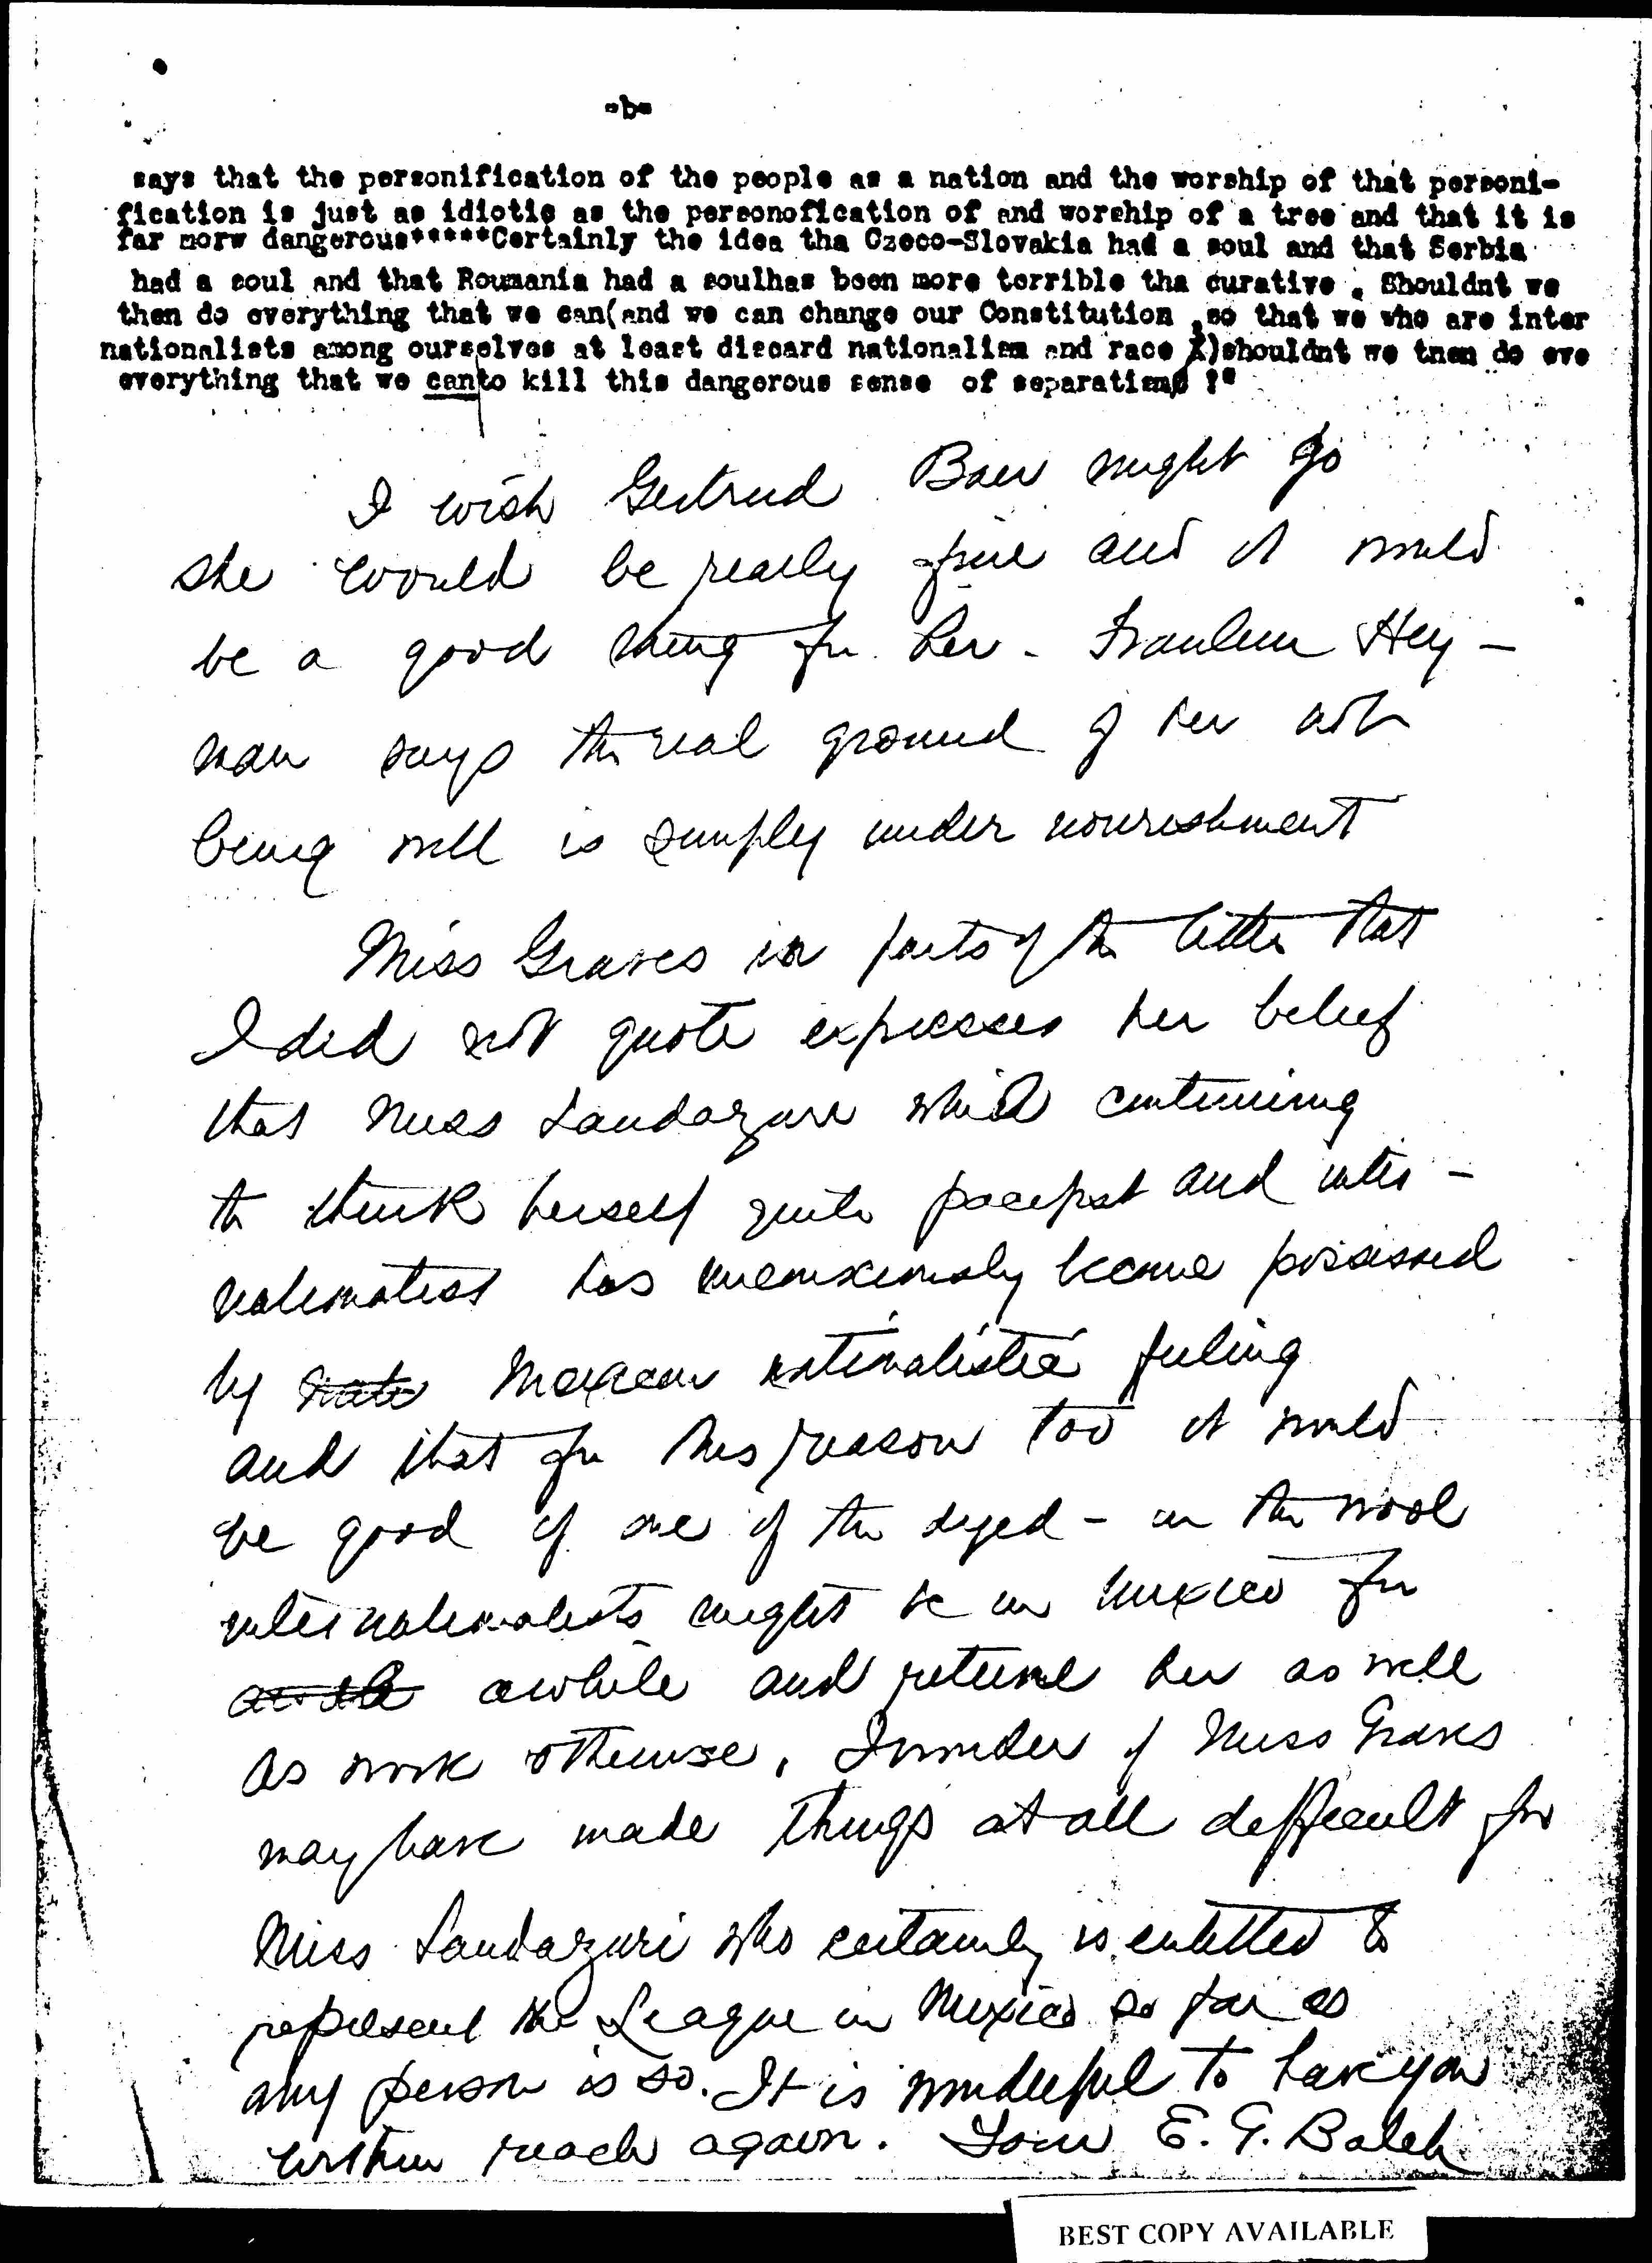 -b-
says that the personification of the people as a nation and the worship of that personi-
fication is just as idiotic as the personofication of and worship of a tree and that it is
far morw dangerous*****Certainly the idea tha Czeco-Slovakia had a soul and that Serbia
had a soul and that Roumania had a soulhas been more terrible tha curative . Shouldnt we
then do everything that we can(and we can change our Constitution ,so that we who are inter
nationalists among ourselves at least discard nationalism and race )shouldnt we tnen do eve
everything that we canto kill this dangerous sense of separatism ?"
I wish Gertrud Baer might go
she would be really fine and it would
be a good thing for her - Fraulein Hey-
man says the real ground of her not
being well is simply under nourishment
Miss Graves in parts of the letter that
I did not quote expresses her belief
that Miss Landazuri while continuing
to think herself quite pacifist and inter-
nationalist has unconsciously become possessed
by Mexican nationalistic feeling
and that for this reason too it would
be good if one of the dyed-in the wool
internationalists might be in Mexico for
awhile and retune her as well
as work otherwise. I wonder if Miss Graves
may have made things at all difficult for
Miss Landazuri who certainly is entitled to
represent the League in Mexico so far as
any person is so. It is wonderful to have you
within reach again. Your E. G. Balch
BEST COPY AVAILABLE